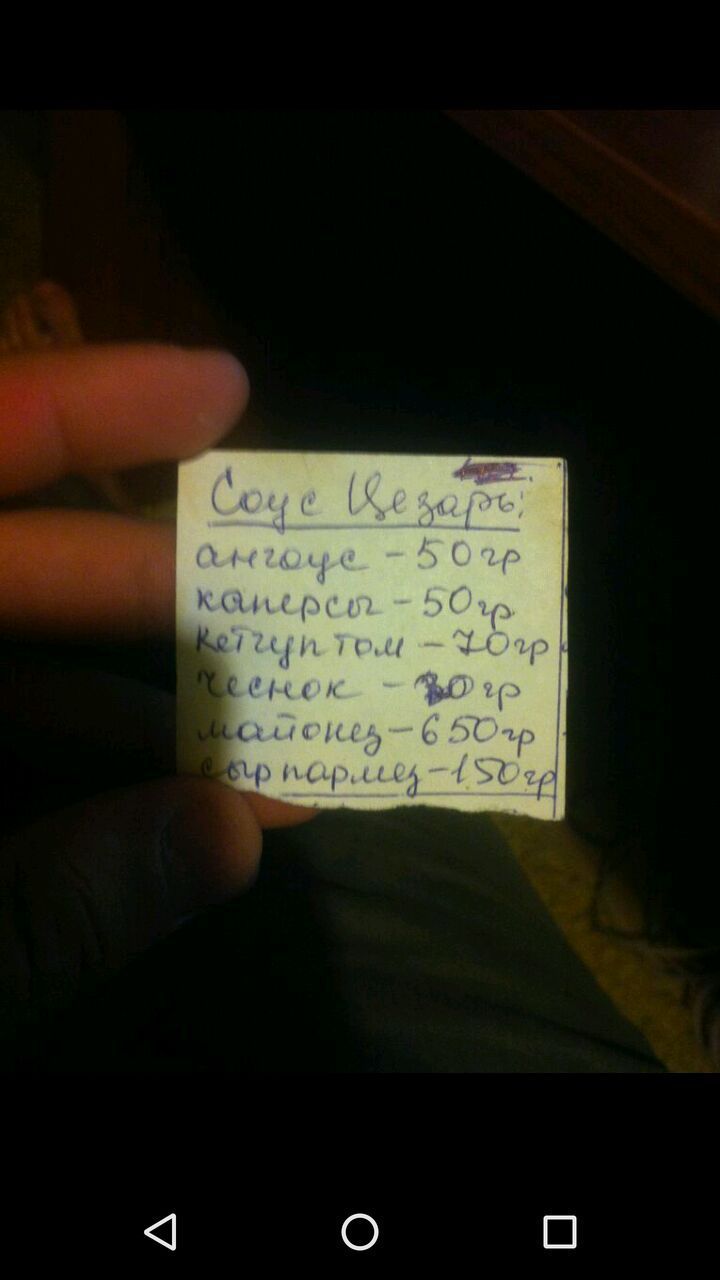 Соус Цезарь:
ангоус - 50гр
каперсы - 50гр
кетчуп том - 70гр
чеснок - гр
майонез - 650гр
сыр пармез - 150гр